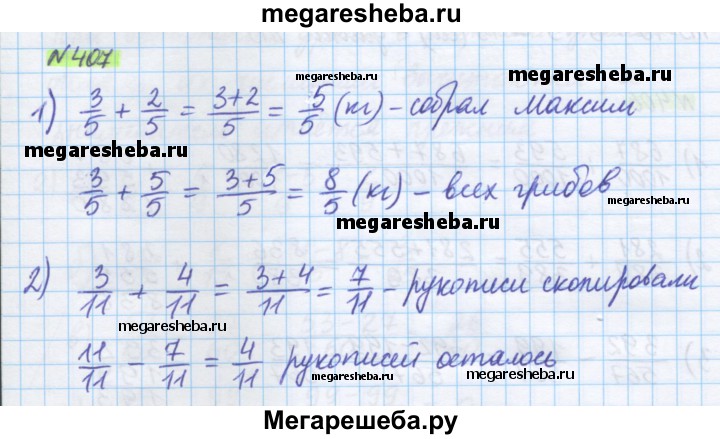 megaresheba.ru
№407
megaresheba.ru
1) 3/5 + 2/5 = 3+2/5 = 5/5 (кг) - собрал Максим
megaresheba.ru
3/5 + 5/5 = 3+5/5 = 8/5 (кг) - всех грибов
megaresheba.ru
megaresheba.ru
2) 3/11 + 4/11 = 3+4/11 = 7/11 - рукописи скопировали
megaresheba.ru
11/11 - 7/11 = 4/11 рукописей осталось
megaresheba.ru
Мегарешеба.ру